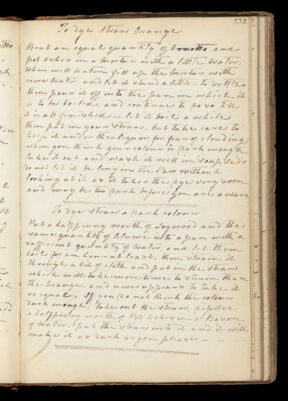 132
To dye Straws Orange
Beat an equal quantity of Arnotto and
pot ashes in a mortar with a little water.
When well beaten fill up the mortar with
more water and let it stand a little to settle
then pour it off into the pan in which it
is to be boiled, and continue to do so till
it is all finished - let it boil a while
then put in your straws, but take care to
keep it under the liquor for fear of clouding
when you think your colour is dark enough
take it out and wash it well in soap suds
do not let it be long on the fire without
looking at it as it takes the dye very soon
and may be too dark before you are aware
To dye Straws a Dark colour
Put a halfpenny worth of Logwood and the
same quantity of into a pan with a
sufficient quantity of water, and let them
boil for an hour at least, then strain it
through a bit of cloth and put in the straws
which will take more time to than
the Orange, and never appears to take it
so regular. If you do not think the colour
dark enough take out the straws, dissolve
a halfpenny worth of Pot Ashes in a Bason
of water, put the straws into it and it will
make it as dark as you please -